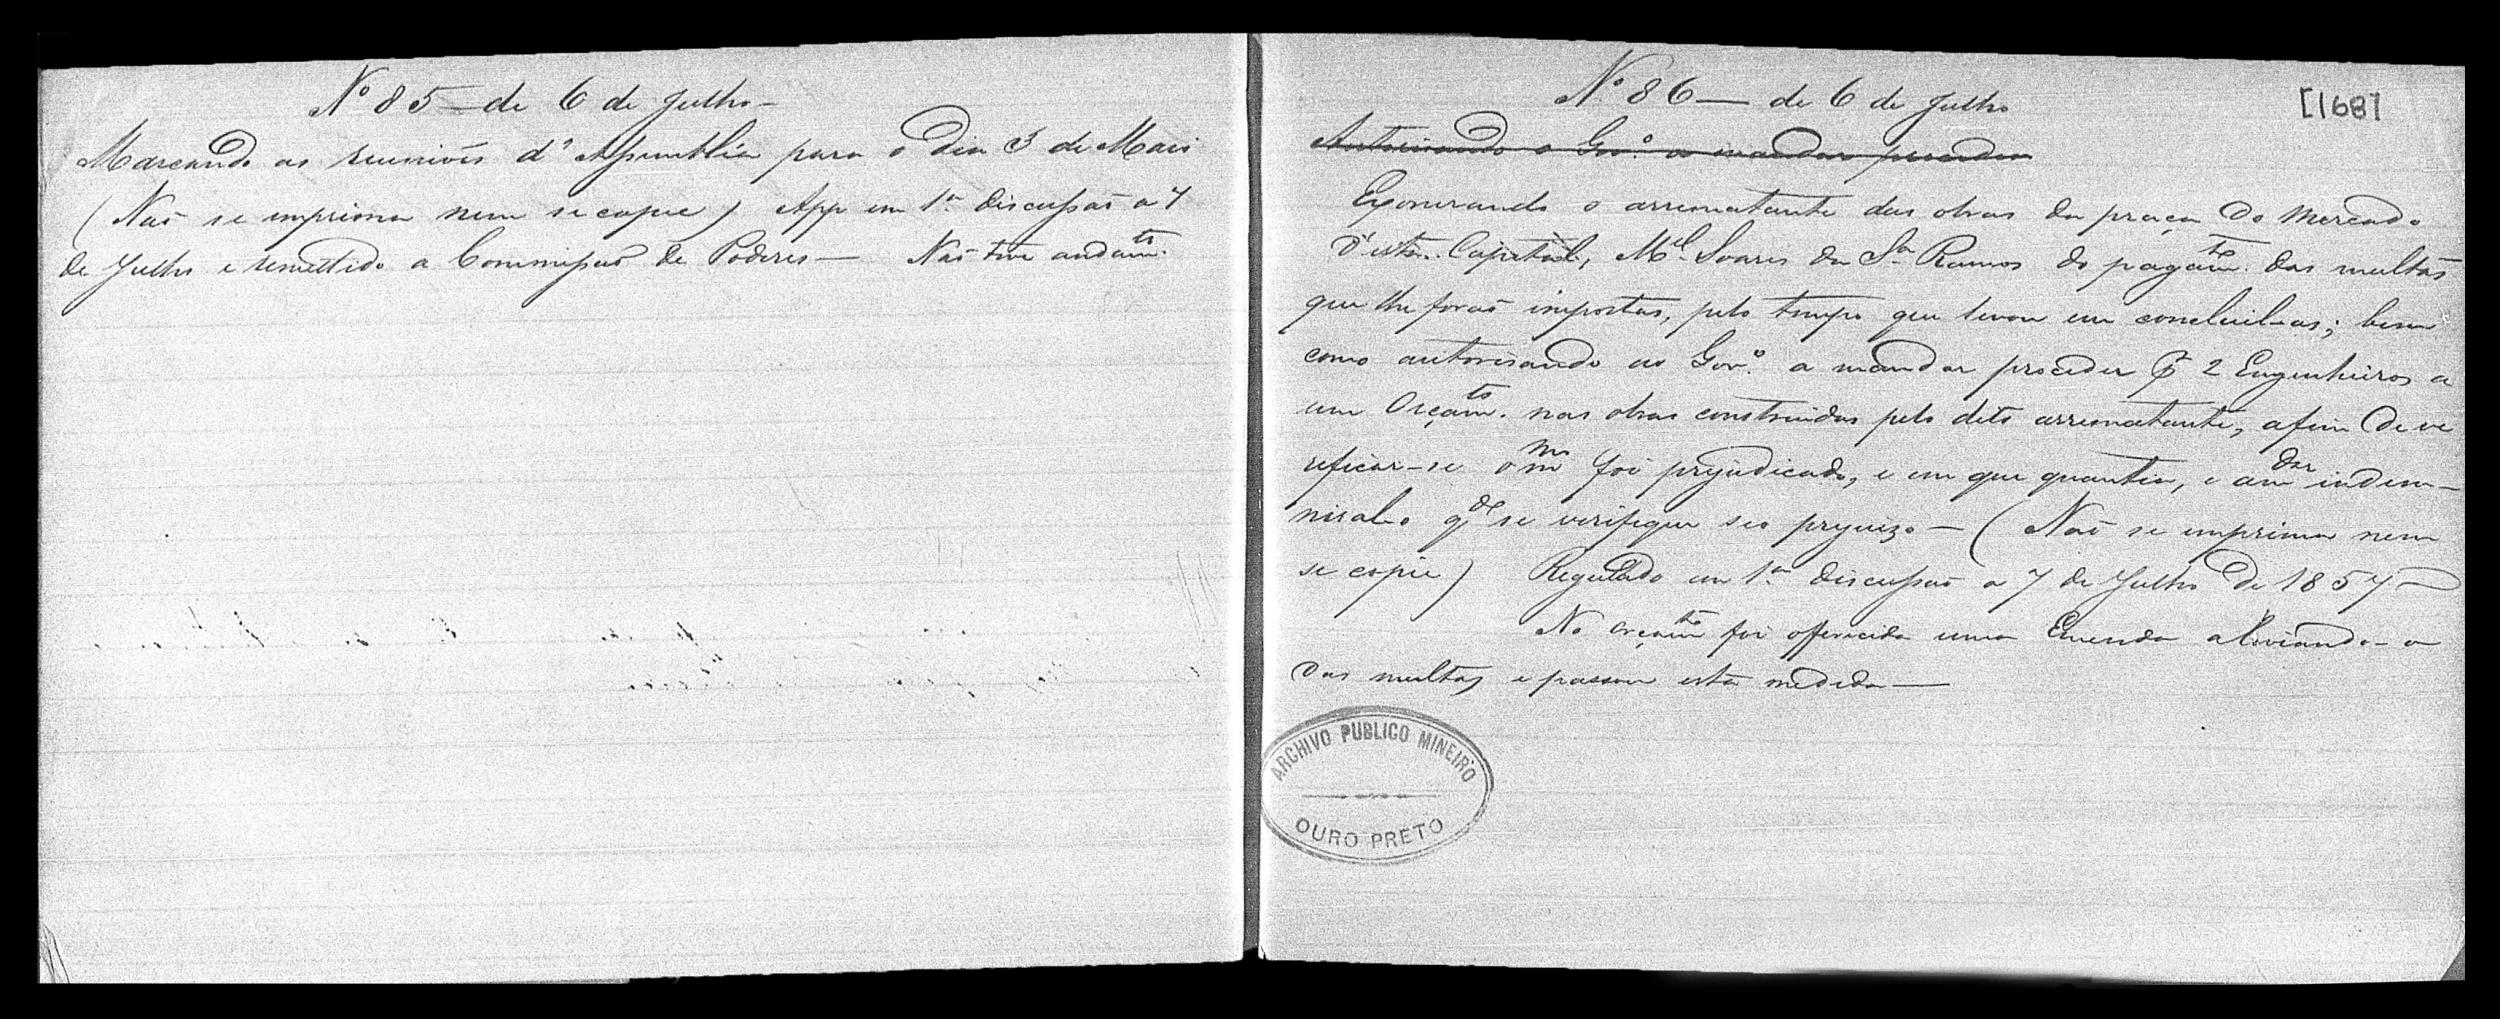 Nº 85 — de 6 de Julho —
Marcando as reuniões d'Assembléa para o dia 3 de Maio
(Não se imprima nem se copie) App em 1ª discussão a 7
de Julho e remettido a Commissão de Poderes — Não teve andamto.
Nº 86 — de 6 de Julho
[168]
Autorisando o Govº. a mandar proceder
Exonerando o arrematante das obras da praça do Mercado
d'esta Capital, Mel. Soares da Sª Ramos do pagamto. das multas
que lhe forão impostas, pelo tempo que levou em concluil-as; bem
como autorisando ao Govº. a mandar proceder p 2 Engenheiros a
um Orçamto. nas obras construidas pelo dito arrematante, afim de ve
reficar-se o mmo foi prejudicado, e em que quantia, e a indem-
nisal-o qdo se verifique seo prejuizo — (Não se imprima nem
se copie) Regeitado em 1ª discussão a 7 de Julho de 1857 —
No orçamto foi offerecida uma Emenda alliviando-o
das multas e passou esta medida —
ARCHIVO PUBLICO MINEIRO
OURO PRETO